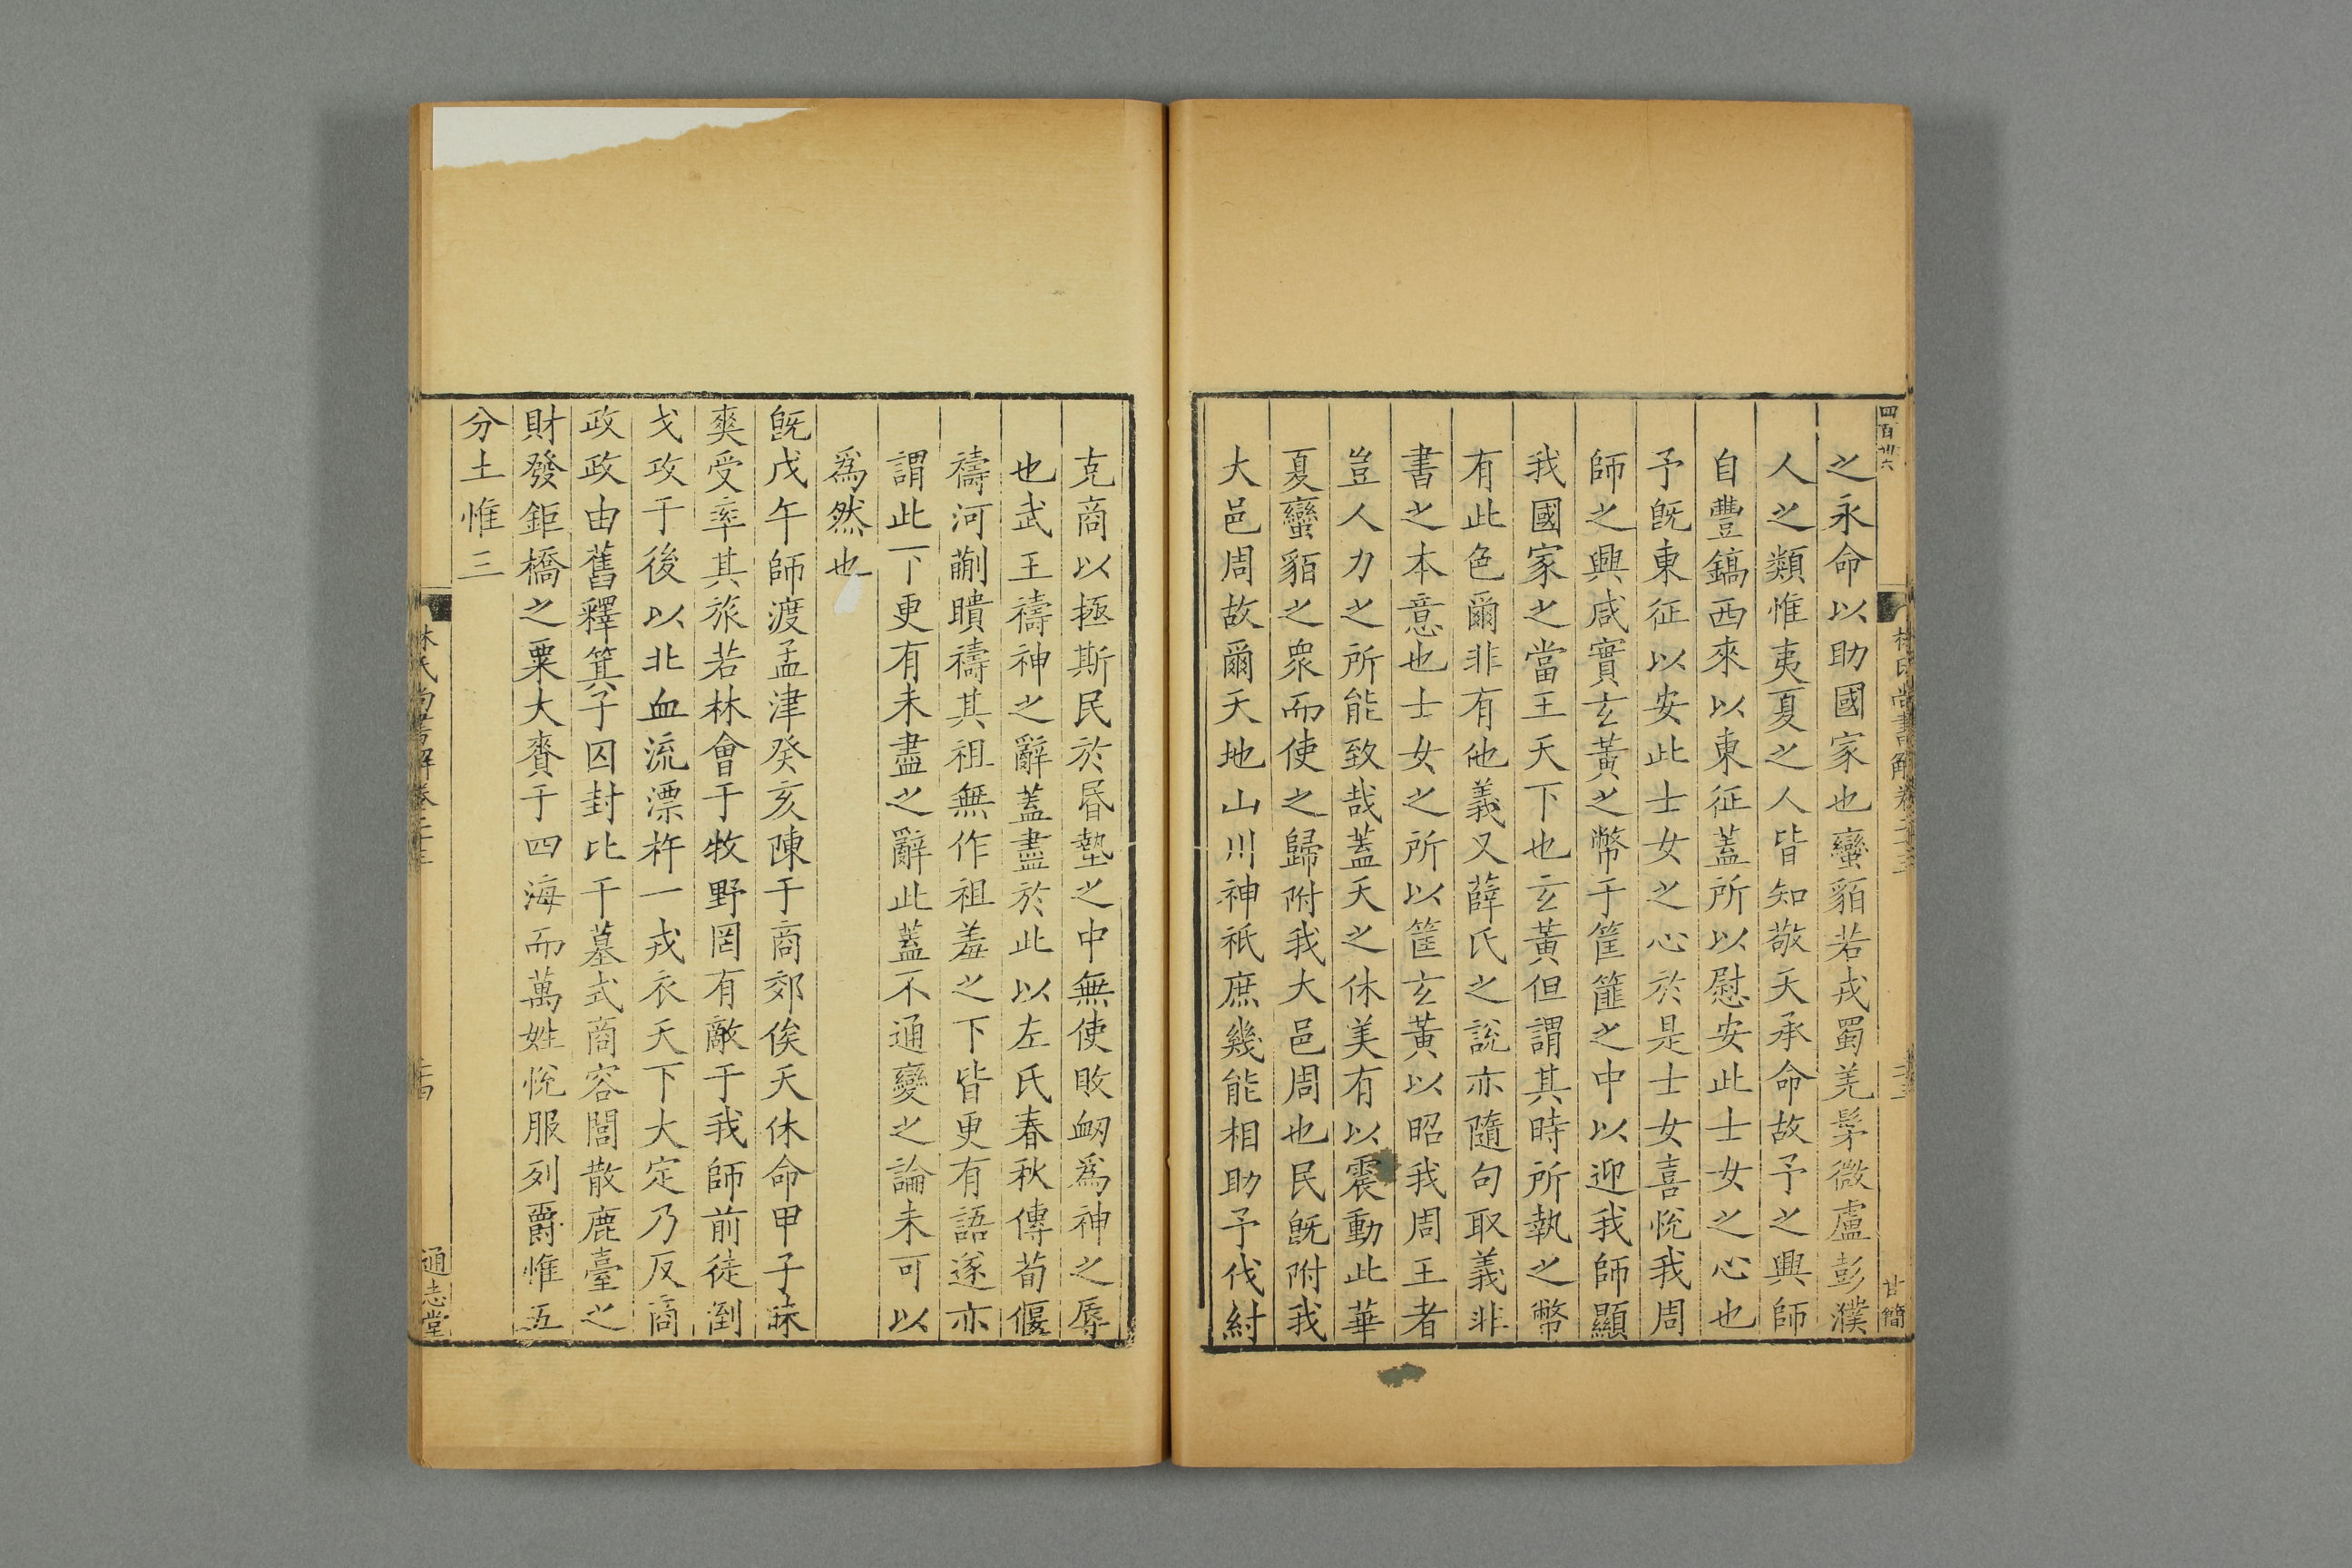 四百卅六
林氏尚書解卷二十三
二十三
甘簡
之永命以助國家也蠻貊若戎蜀羌髳微盧彭濮
人之類惟夷夏之人皆知敬天承命故予之興師
自豐鎬西來以東征蓋所以慰安此士女之心也
予旣東征以安此士女之心於是士女喜悅我周
師之興咸實玄黃之幣于筐篚之中以迎我師顯
我國家之當王天下也玄黃但謂其時所執之幣
有此色爾非有他義又薛氏之說亦隨句取義非
書之本意也士女之所以筐玄黃以昭我周王者
豈人力之所能致哉蓋天之休美有以震動此華
夏蠻貊之衆而使之歸附我大邑周也民旣附我
大邑周故爾天地山川神祇庶幾能相助予伐紂
克商以拯斯民於昬墊之中無使敗衂爲神之辱
也武王禱神之辭蓋盡於此以左氏春秋傳荀偃
禱河蒯瞶禱其祖無作祖羞之下皆更有語遂亦
謂此下更有未盡之辭此蓋不通變之論未可以
爲然也
旣戊午師渡孟津癸亥陳于商郊俟天休命甲子昧
爽受率其旅若林會于牧野罔有敵于我師前徒倒
戈攻于後以北血流漂杵一戎衣天下大定乃反商
政政由舊釋箕子囚封比干墓式商容閭散鹿臺之
財發鉅橋之粟大賚于四海而萬姓悅服列爵惟五
分土惟三
林氏尚書解卷二十三
二十四
通志堂